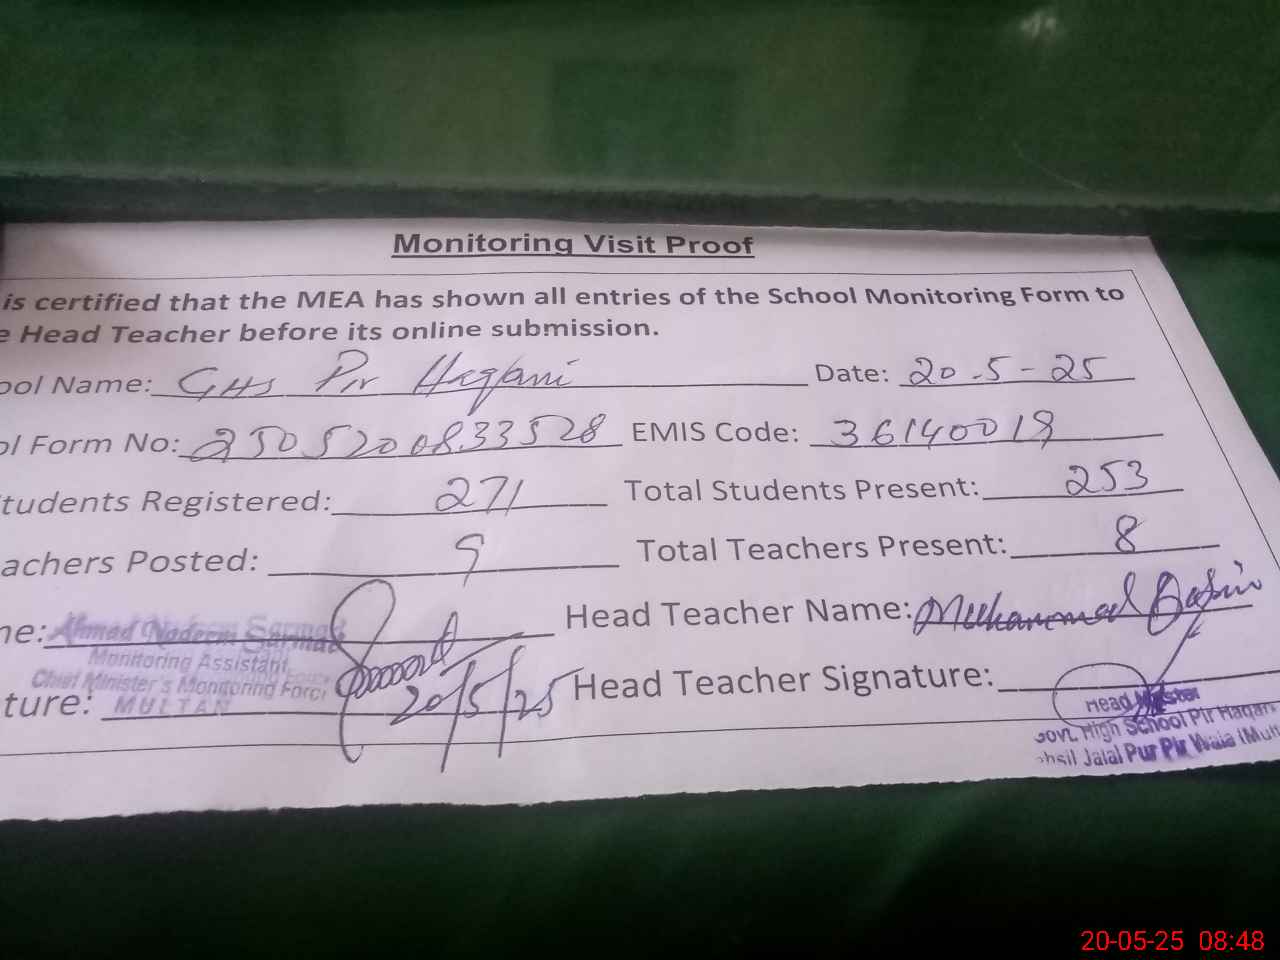 Monitoring Visit Proof
is certified that the MEA has shown all entries of the School Monitoring Form to
e Head Teacher before its online submission.
ool Name: GHS Pir Haqani Date: 20-5-25
ol Form No: 2505200833528 EMIS Code: 36140019
tudents Registered: 271 Total Students Present: 253
achers Posted: 9 Total Teachers Present: 8
ne: Ahmad Nadeem Sarmad Head Teacher Name: Muhammad
Monitoring Assistant
Chief Minister's Monitoring Force
MULTAN
ture: 20/5/25 Head Teacher Signature:
Head Master
Govt. High School Pir Haqani
ehsil Jalal Pur Pir Wala (Mult
20-05-25 08:48